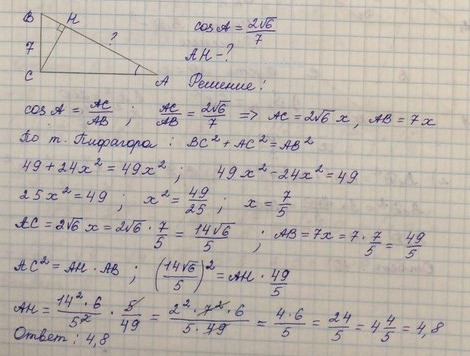 B H ? cosA = 2√6/7
7 AH - ?
C A Решение:
cosA = AC/AB ; AC/AB = 2√6/7 => AC = 2√6 x , AB = 7x
По т. Пифагора : BC² + AC² = AB²
49 + 24x² = 49x² ; 49x² - 24x² = 49
25x² = 49 ; x² = 49/25 ; x = 7/5
AC = 2√6 x = 2√6 · 7/5 = 14√6/5 ; AB = 7x = 7 · 7/5 = 49/5
AC² = AH · AB ; (14√6/5)² = AH · 49/5
AH = 14² · 6/5² · 5/49 = 2² · 7² · 6/5 · 49 = 4 · 6/5 = 24/5 = 4 4/5 = 4,8
Ответ : 4,8